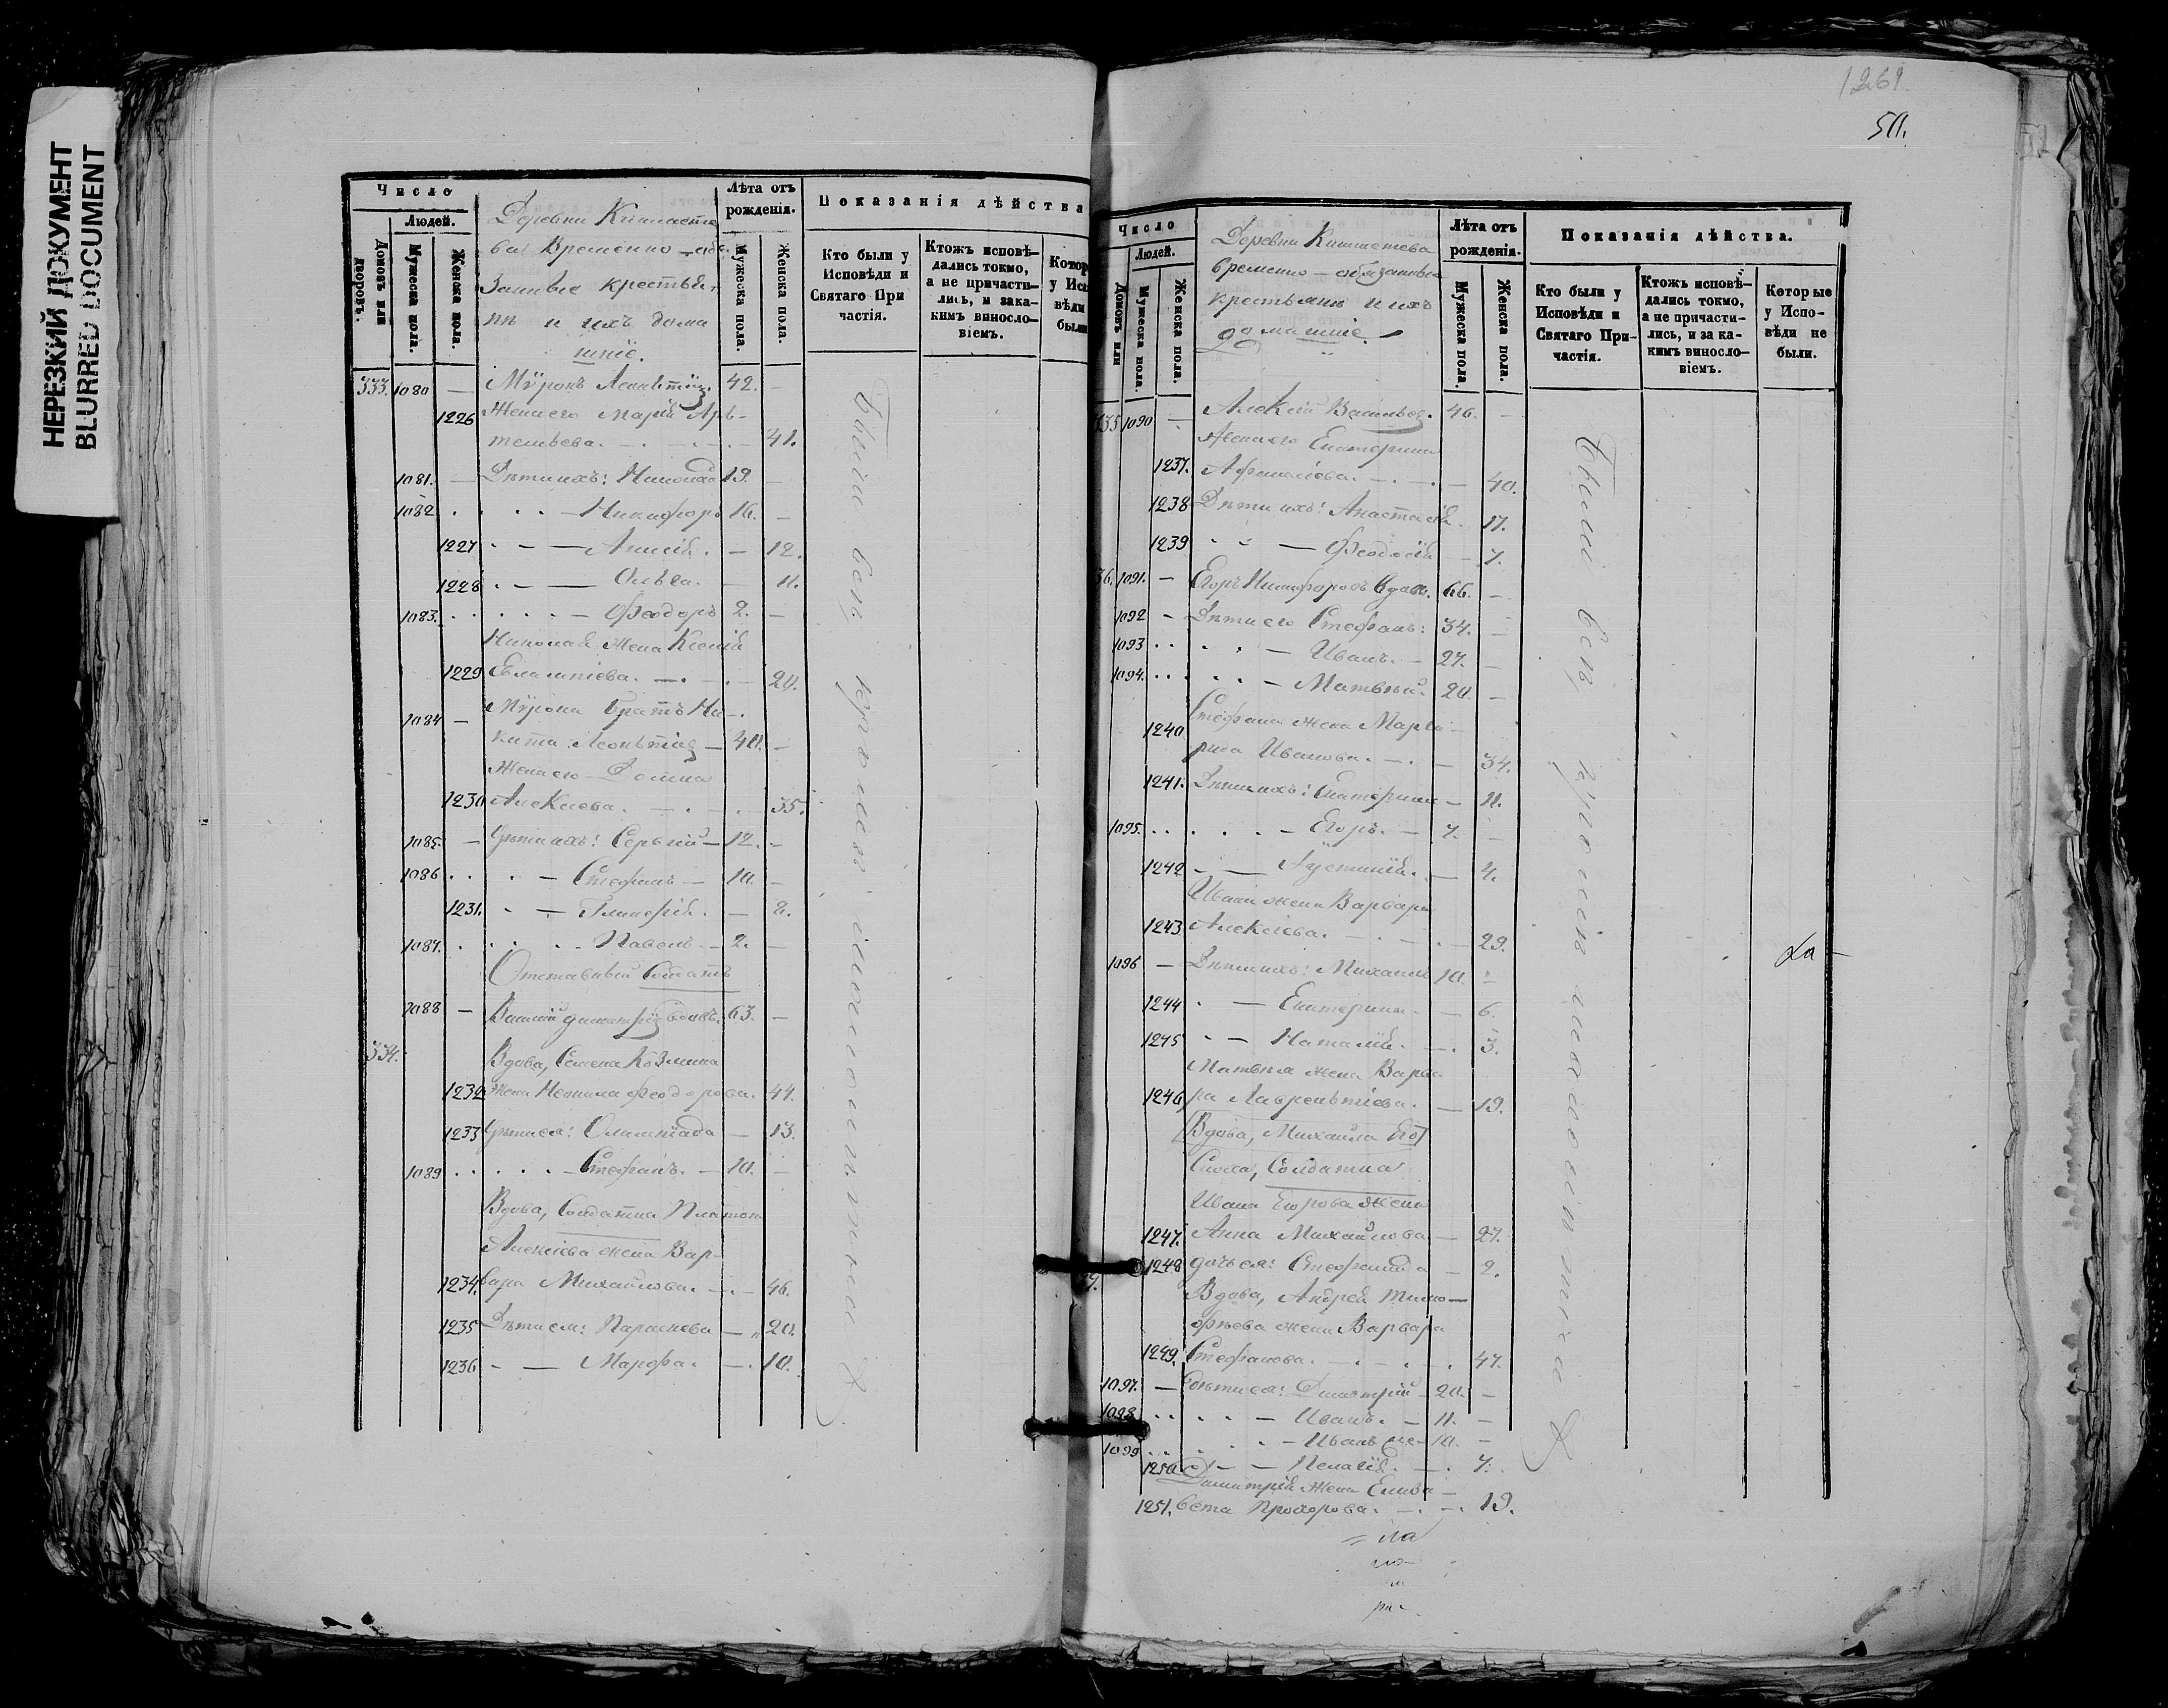 НЕРЕЗКИЙ ДОКУМЕНТ
BLURRED DOCUMENT
Число
Людей.
Домовъ или дворовъ.
Мужеска пола.
Женска пола.
Деревни
Временно-обя
занные крестья
не и ихъ дома
шніе.
Лѣта отъ рожденія.
Мужеска пола.
Женска пола.
Показанія дѣйства
Кто были у Исповѣди и Святаго При частія.
Ктожъ исповѣ- дались токмо, а не причасти- лись, и зака- кимъ виносло- віемъ.
333. 1080 — Мѵронъ 42. —
1226 Жена его Марія Ар-
темьева. — 41.
1081. — Дѣти ихъ: Николай 19. —
1082 — Никифоръ 16. —
1227 — Анисія. — 12.
1228 — Ольга. — 11.
1083. — Феодоръ 2. —
Николая жена Ксенія
1229 Евлампіева. — 20.
1084 — Мѵрона братъ Ни-
кита — 40. —
Жена его Домна
1230 Алексіева. — 35.
1085. — Дѣти ихъ: Сергій — 12. —
1086 — Стефанъ — 10. —
1231. — Гликерія. — 8.
1087. — Павелъ. — 2. —
Отставный Солдатъ
1088 — Василій 63. —
334. Вдова, Семена Козмина
1232 жена Неонила Феодорова. 44.
1233 Дѣти ея: Олимпіада — 13.
1089 — Стефанъ. — 10. —
Вдова, Солдатка Платона
Алексіева жена Вар-
1234. вара Михайлова. — 46.
1235 Дѣти ея: Параскева — 20.
1236 — Марфа. — 10.
Были всѣ
1261
50.
Число
Людей.
Домовъ или
Мужеска пола.
Женска пола.
Деревни
временно-обязанные
крестьяне и ихъ
домашніе.
Лѣта отъ рожденія.
Мужеска пола.
Женска пола.
Показанія дѣйства.
Кто были у Исповѣди и Святаго При- частія.
Ктожъ исповѣ- дались токмо, а не причасти- лись, и за ка- кимъ виносло- віемъ.
Которые у Испо- вѣди не были.
335 1090 — Алексій Васильев. 46. —
Жена его Екатерина
1237. Афанасіева. — 40.
1238 Дѣти ихъ: Анастасія. 17.
1239 — Феодосія — 7.
36. 1091. — Егоръ Никифоровъ вдовъ. 66. —
1092 — Дѣти его Стефанъ: 34. —
1093 — Иванъ. — 27. —
1094. — Матвѣй. 20. —
Стефана жена Марга
1240 рита Иванова. — 34.
1241. Дѣти ихъ: Екатерина — 11.
1095. — Егоръ. — 7. —
1242 — Іустинія. — 4.
Ивана жена Варвара
1243 Алексіева. — 29.
1096 — Дѣти ихъ: Михаилъ 10. —
1244 — Екатерина. — 6.
1245 — Наталія. — 3.
Матвѣя жена Варва
1246 ра Лаврентіева. — 19.
Вдова, Михаила Его
Сноха, Солдатка
Ивана Егорова жена
1247. Анна Михайлова — 27.
1248 дочь ея: Стефанида — 2.
Вдова, Андрея Тимо-
фѣева жена Варвара
1249. Стефанова. — 47.
1097. — Дѣти ея: Димитрій — 20. —
1098 — Иванъ. — 11. —
1099 — Иванъ 10. —
1250 — Пелагія. — 7.
Димитрія жена Елиза-
1251. вета Прохорова. — 19.
Были всѣ